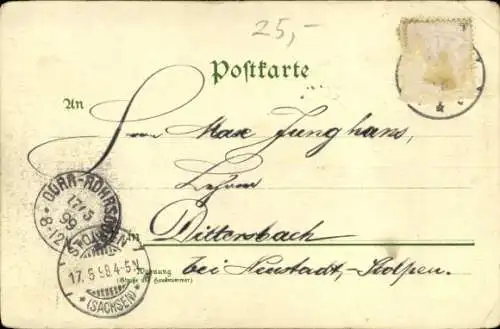 25,-
Postkarte
An
Herrn Max Junghans,
Lehrer
in Dittersbach
bei Neustadt-Stolpen.
Wohnung
(Straße und Hausnummer)
DÜRR-RÖHRSDORF
17/5
98
8-12
STOLPEN
17.5.98.4-5N
*(SACHSEN)*